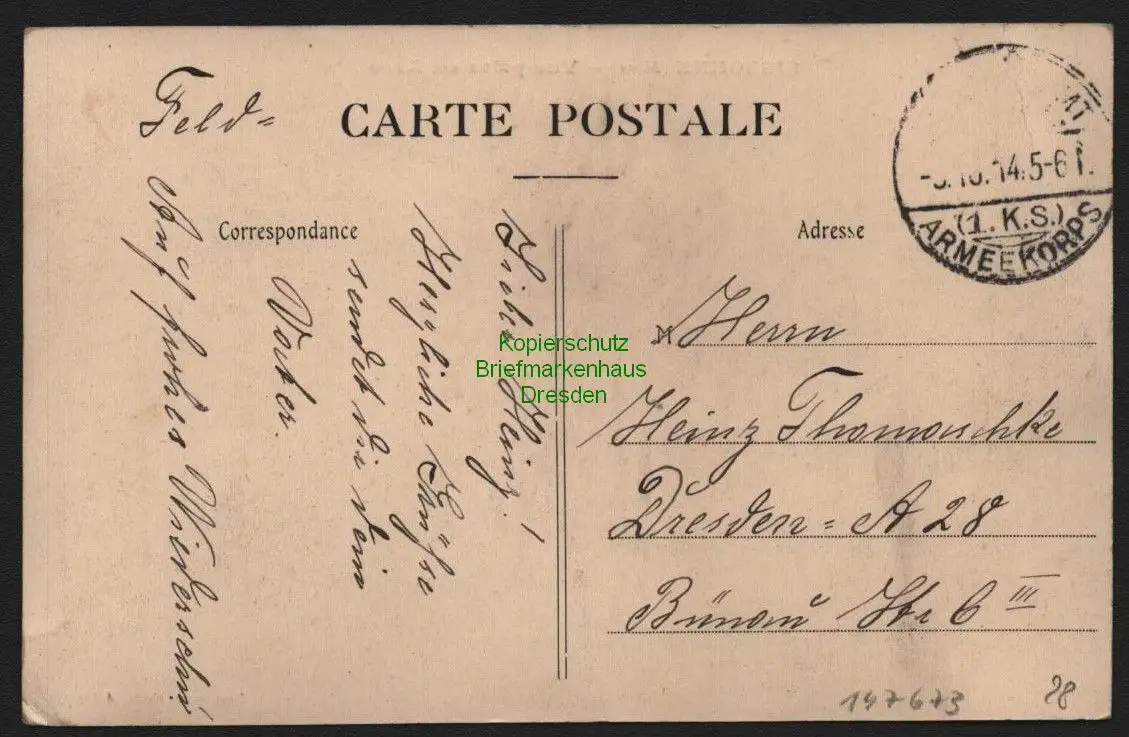 Feld=
CARTE POSTALE
Correspondance
Adresse
14.5-6
(1.K.S.)
ARMEEKORPS
Lieber Heinz!
Herzliche Grüße
sendet dir dein
Vater.
Auf frohes Wiedersehn!
Herrn
Heinz Thomaschke
Dresden=A 28
Bünau Str 6 III
Kopierschutz
Briefmarkenhaus
Dresden
147673
28